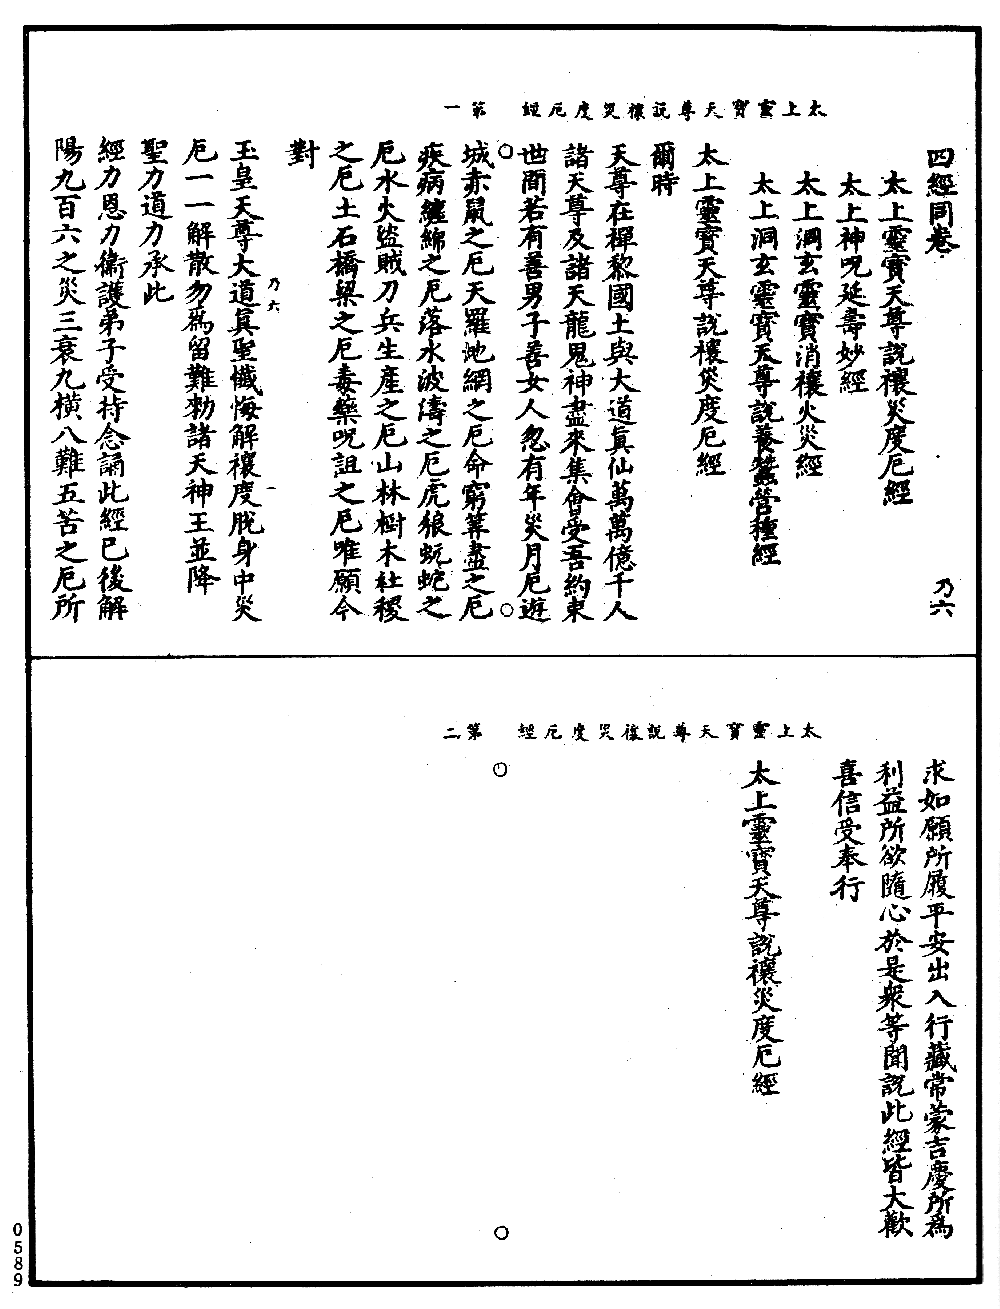 太上靈寶天尊說禳災度厄經　第一
四經同卷　乃六
太上靈寶天尊說禳災度厄經
太上神呪延壽妙經
太上洞玄靈寶消禳火災經
太上洞玄靈寶天尊說養蠶營種經
太上靈寶天尊說禳災度厄經
爾時
天尊在禪黎國土與大道真仙萬萬億千人
諸天尊及諸天龍鬼神盡來集會受吾約束
世間若有善男子善女人忽有年災月厄遊
城赤鼠之厄天羅地網之厄命窮筭盡之厄
疾病纏綿之厄落水波濤之厄虎狼蚖蛇之
厄水火盜賊刀兵生產之厄山林樹木社稷
之厄土石橋梁之厄毒藥呪詛之厄唯願今
對
乃六　一
玉皇天尊大道真聖懺悔解禳度脫身中災
厄一一解散勿為留難勑諸天神王並降
聖力道力承此
經力恩力衛護弟子受持念誦此經已後解
陽九百六之災三衰九橫八難五苦之厄所
太上靈寶天尊說禳災度厄經　第二
求如願所履平安出入行藏常蒙吉慶所為
利益所欲隨心於是眾等聞說此經皆大歡
喜信受奉行
太上靈寶天尊說禳災度厄經
0589